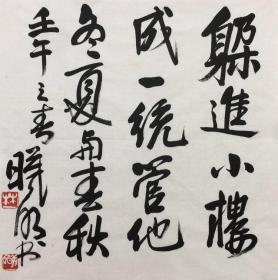 躲進小樓
成一統管他
冬夏与春秋
壬午之春
曉明书